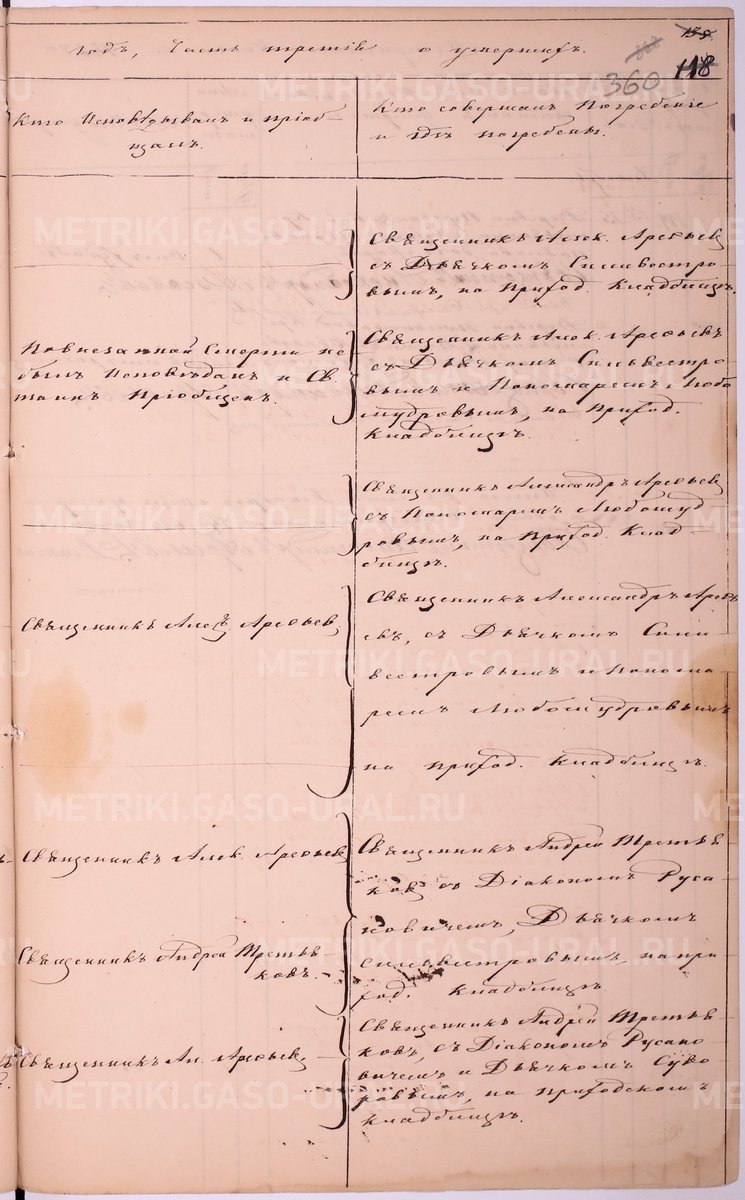 годъ, Часть третія о умершихъ.
360
118
Кто Исповѣдывалъ и пріоб-
щалъ.
Кто совершалъ Погребеніе
и гдѣ погребены.
Священникъ Алек. Арефьевъ
съ Дьячкомъ Сильвестро-
вымъ, на Приход. Кладбищѣ.
По внезапной Смерти не
былъ Исповѣданъ и Св.
таинъ Пріобщенъ.
Священникъ Алек. Арефьевъ
съ Дьячкомъ Сильвестро-
вымъ и Пономаремъ Любо
мудровымъ, на Приход.
Кладбищѣ.
Священникъ Александръ Арефьевъ
съ Пономаремъ Любомуд
ровымъ, на Приход. Клад-
бищѣ.
Священникъ Алек. Арефьевъ
Священникъ Александръ Арефь
евъ, съ Дьячкомъ Силь
вестровымъ и Понома
ремъ Любомудровымъ
на приход. Кладбищѣ.
Священникъ Алек. Арефьевъ
Священникъ Андрей Третья
ковъ съ Діакономъ Руса
новичемъ, Дьячкомъ
Сильвестровымъ, на при
ход. Кладбищѣ
Священникъ Андрей Третья
ковъ.
Священникъ Ал. Арефьевъ
Священникъ Андрей Третья
ковъ, съ Діакономъ Русано-
вичемъ и Дьячкомъ Суво
ровымъ, на Приходскомъ
Кладбищѣ.
METRIKI.GASO-URAL.RU